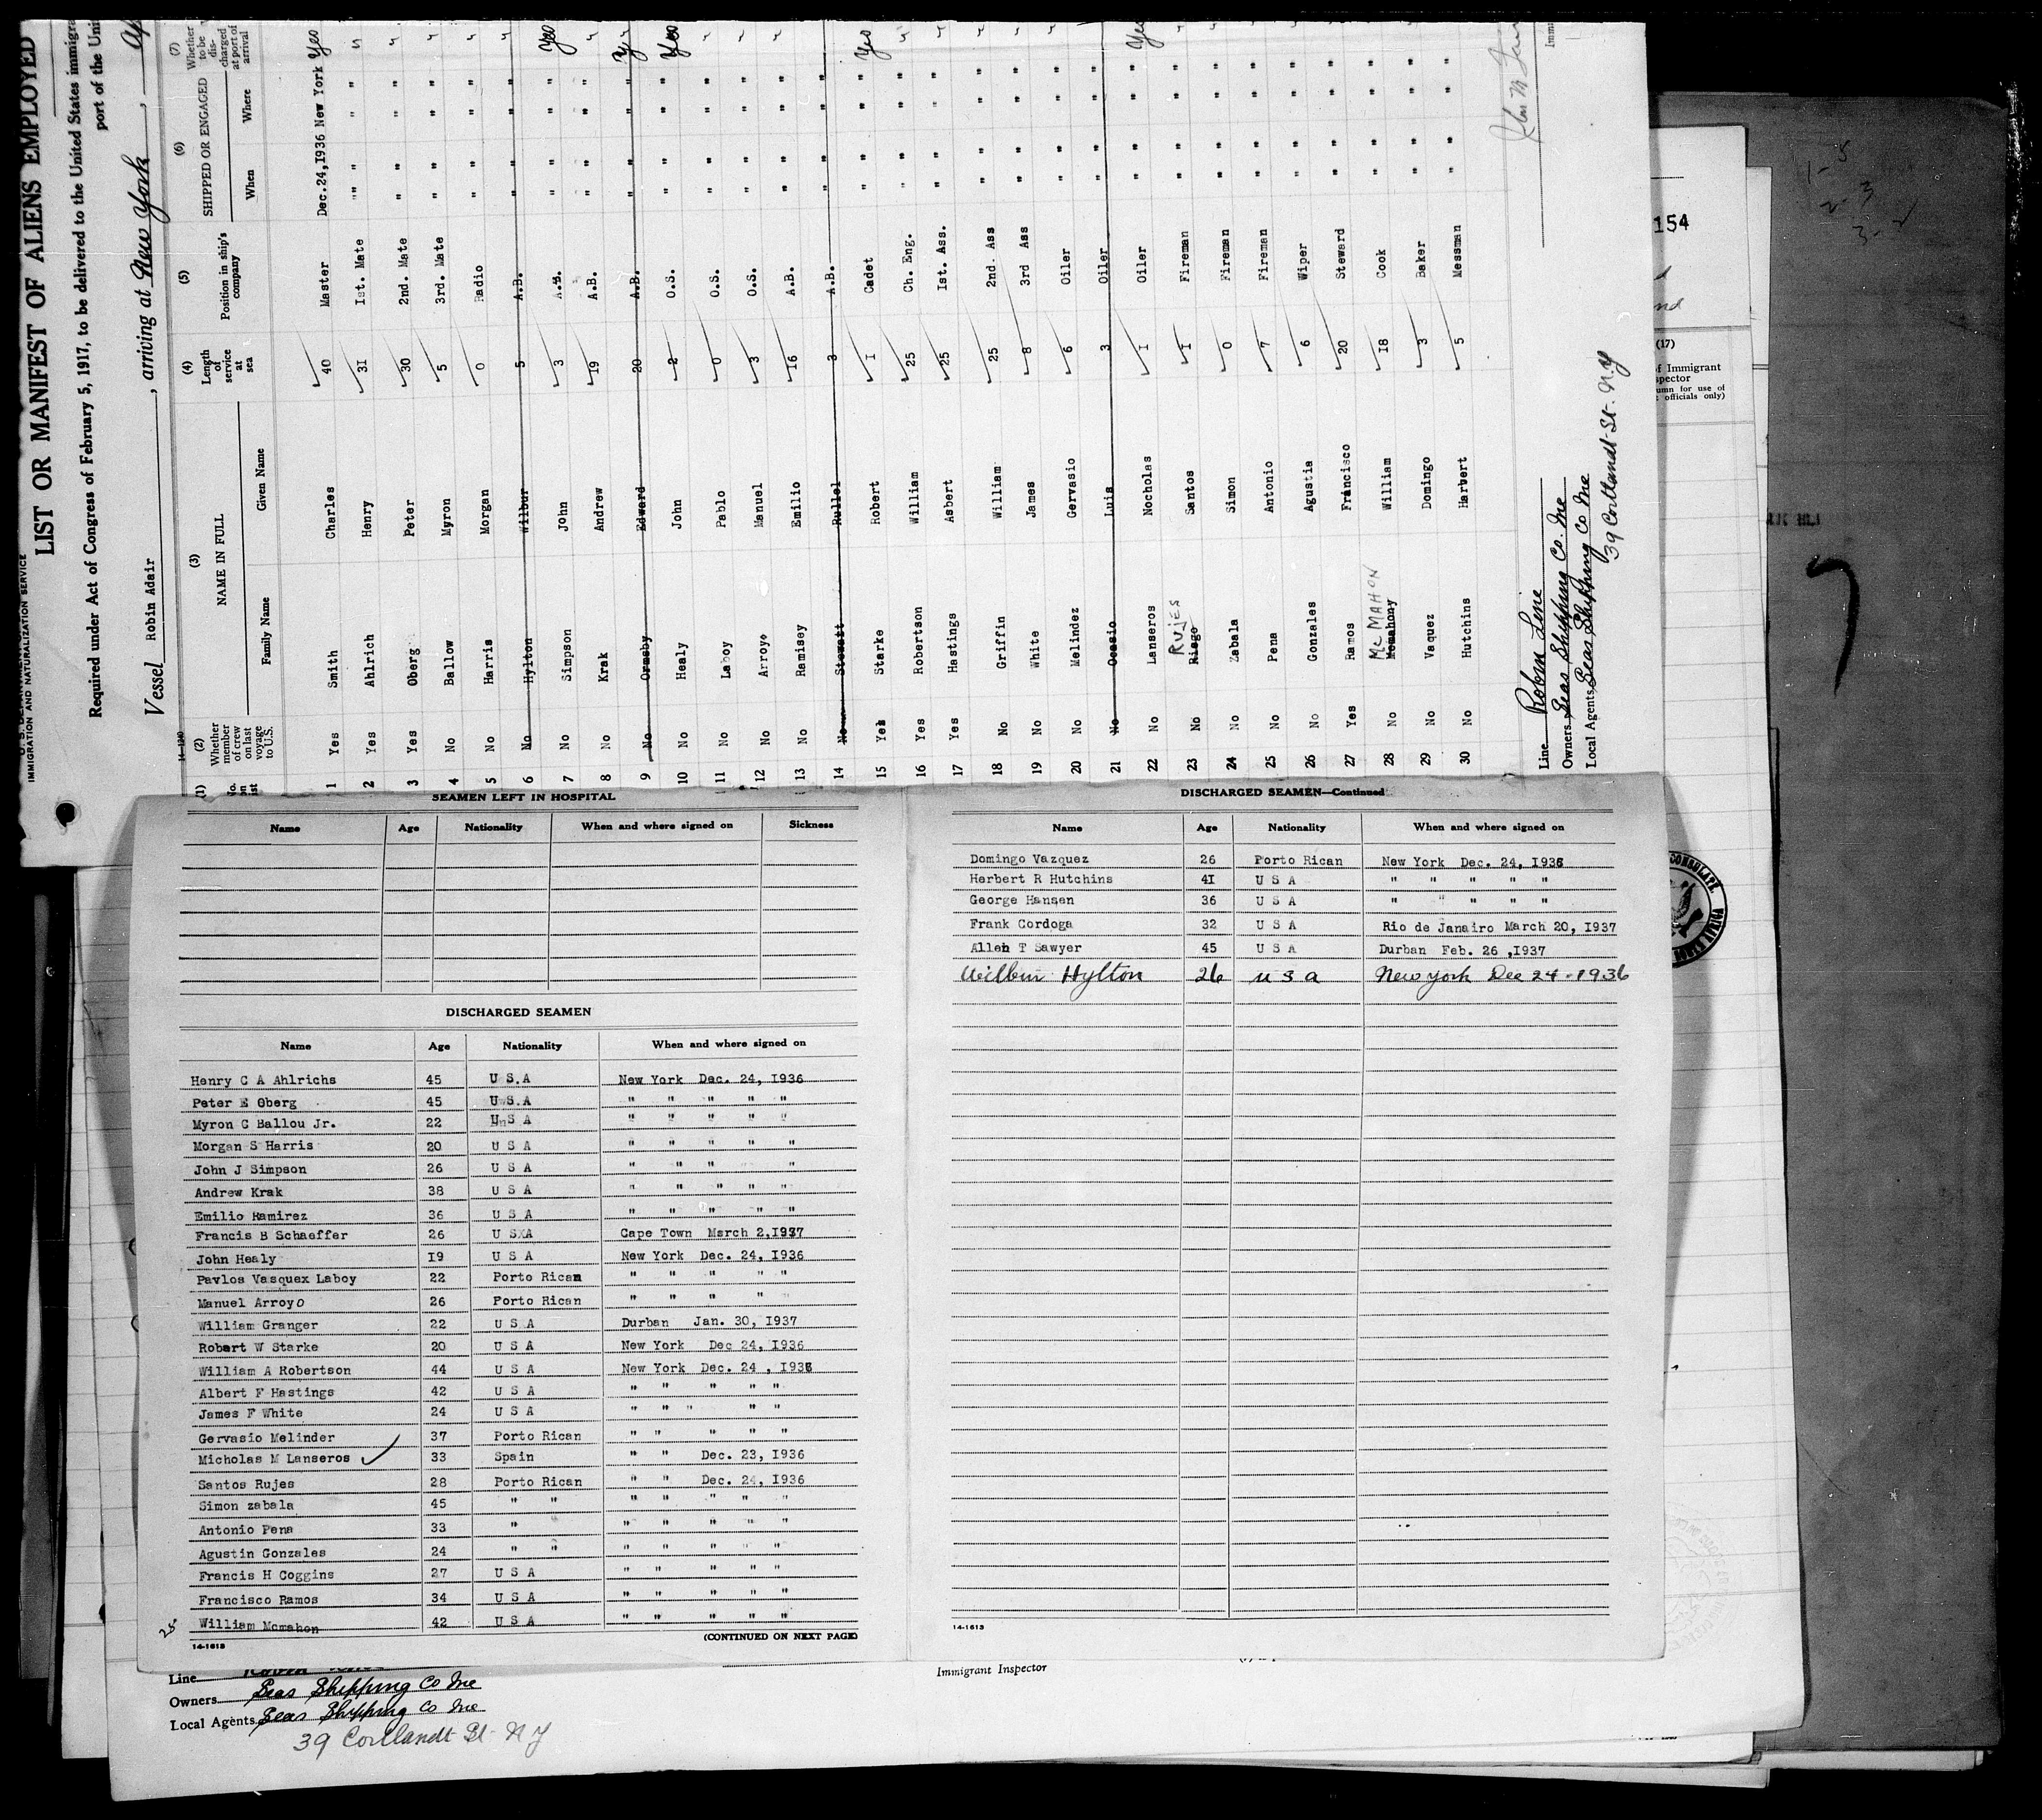 U. S. DEPARTMENT
IMMIGRATION AND NATURALIZATION SERVICE
LIST OR MANIFEST OF ALIENS EMPLOYED
Required under Act of Congress of February 5, 1917, to be delivered to the United States immigra
port of the Uni
Vessel Robin Adair, arriving at New York, Ap
14-1240
(1) No. on list (2) Whether member of crew on last voyage to U.S. (3) NAME IN FULL Family Name Given Name (4) Length of service at sea (5) Position in ship's company (6) SHIPPED OR ENGAGED When Where (7) Whether to be discharged at port of arrival
1 Yes Smith Charles 40 Master Dec.24,I936 New York Yes
2 Yes Ahlrich Henry 3I Ist. Mate " " " " "
3 Yes Oberg Peter 30 2nd. Mate " " " "
4 No Ballow Myron 5 3rd. Mate " " " "
5 No Harris Morgan 0 Radio " " " "
6 No Hylton Wilbur 5 A.B. " " " "
7 No Simpson John 3 A.B. " " " " Yes
8 No Krak Andrew I9 A.B. " " " "
9 No Ormsby Edward 20 A.B. " " " "
10 No Healy John 2 O.S. " " " " Yes
11 No Laboy Pablo 0 O.S. " " " "
12 No Arroyo Manuel 3 O.S. " " " "
13 No Ramisey Emilio I6 A.B. " " " "
14 No Stewatt Rullel 3 A.B. " " " "
15 Yes Starke Robert I Cadet " " " " Yes
16 Yes Robertson William 25 Ch. Eng. " " " "
17 Yes Hastings Asbert 25 Ist. Ass. " " " "
18 No Griffin William 25 2nd. Ass " " " "
19 No White James 8 3rd Ass " " " "
20 No Melindez Gervasio 6 Oiler " " " "
21 No Ocasio Luis 3 Oiler " " " "
22 No Lanseros Nocholas I Oiler " " " " Yes
23 No Riego RUJES Santos I Fireman " " " "
24 No Zabala Simon 0 Fireman " " " "
25 No Pena Antonio 7 Fireman " " " "
26 No Gonzales Agustia 6 Wiper " " " "
27 Yes Ramos Francisco 20 Steward " " " "
28 No Mcmahony Mc MAHON William I8 Cook " " " "
29 No Vaquez Domingo 3 Baker " " " "
30 No Hutchins Harbert 5 Messman " " " "
Line Robin Line
Owners Seas Shipping Co. Inc
Local Agents Seas Shipping Co Inc
39 Cortlandt St. N.Y
154
(17)
of Immigrant
spector
umn for use of
officials only)
SEAMEN LEFT IN HOSPITAL
Name Age Nationality When and where signed on Sickness
DISCHARGED SEAMEN
Name Age Nationality When and where signed on
Henry C A Ahlrichs 45 U S.A New York Dec. 24, I936
Peter E Oberg 45 U S.A " " " " "
Myron C Ballou Jr. 22 U S A " " " " "
Morgan S Harris 20 U S A " " " " "
John J Simpson 26 U S A " " " "
Andrew Krak 38 U S A " " " " "
Emilio Ramirez 36 U S A " " " " "
Francis B Schaeffer 26 U SXA Cape Town March 2,I937
John Healy I9 U S A New York Dec. 24, I936
Pavlos Vasquex Laboy 22 Porto Rican " " " " "
Manuel Arroyo 26 Porto Rican " " " "
William Granger 22 U S A Durban Jan. 30, I937
Robert W Starke 20 U S A New York Dec 24, I936
William A Robertson 44 U S A New York Dec. 24 , I936
Albert F Hastings 42 U S A " " " " "
James F White 24 U S A " " " " "
Gervasio Melinder 37 Porto Rican " " " " "
Micholas M Lanseros 33 Spain " " Dec. 23, I936
Santos Rujes 28 Porto Rican " " Dec. 24, I936
Simon zabala 45 " " " " " " "
Antonio Pena 33 " " " " " "
Agustin Gonzales 24 " " " " " " "
Francis H Coggins 27 U S A " " " " "
Francisco Ramos 34 U S A " " " " "
William Mcmahon 42 U S A " " " " "
25
14-1613 (CONTINUED ON NEXT PAGE)
DISCHARGED SEAMEN—Continued
Name Age Nationality When and where signed on
Domingo Vazquez 26 Porto Rican New York Dec. 24, I936
Herbert R Hutchins 4I U S A " " " " "
George Hansen 36 U S A " " " " "
Frank Cordoga 32 U S A Rio de Janairo March 20, I937
Allen T Sawyer 45 U S A Durban Feb. 26 ,I937
Wilbur Hylton 26 U S A New York Dec 24-1936
14-1613
Line
Owners Seas Shipping Co Inc
Local Agents Seas Shipping Co Inc
39 Cortlandt St N Y
Immigrant Inspector